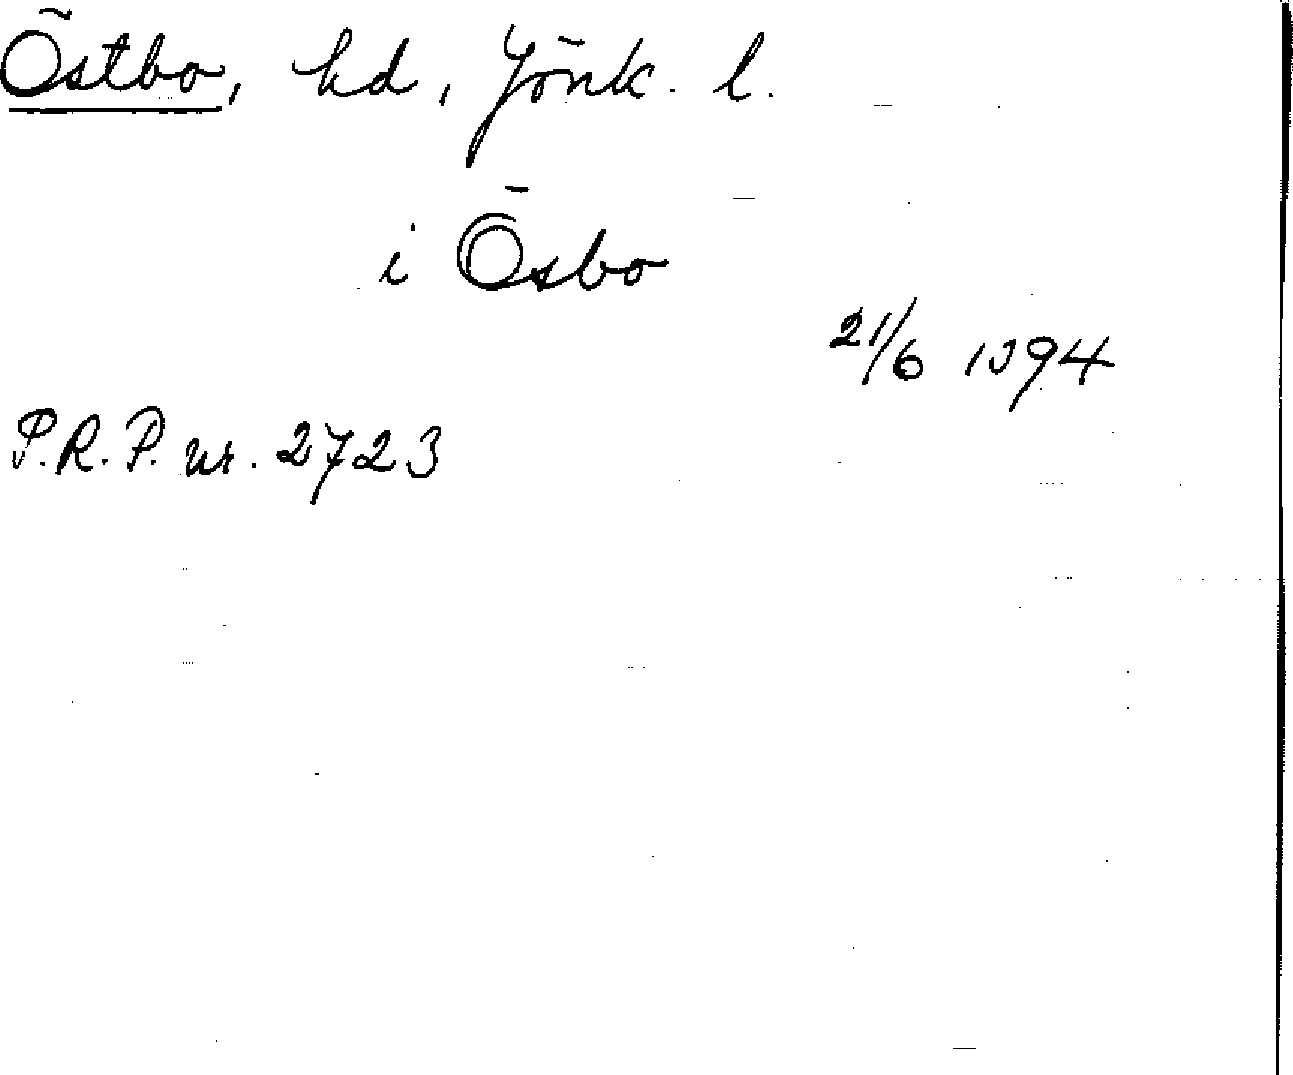 Östbo, hd, Jönk. l.
i Ösbo
21/6 1394
P.R.P. nr. 2723